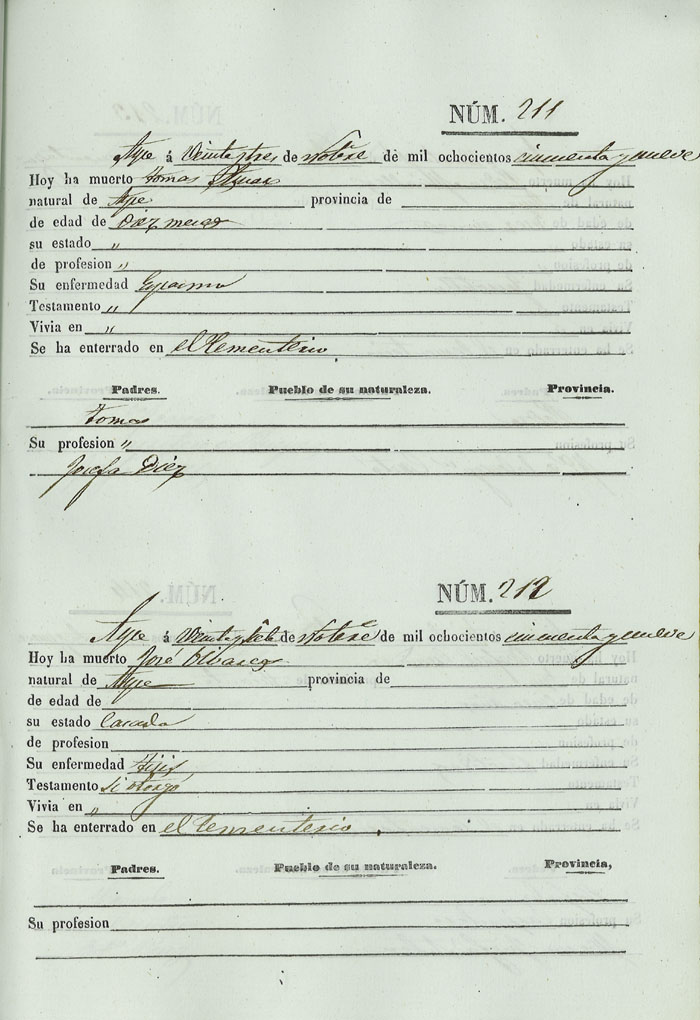 NÚM. 211
Aspe á Veintaytres de Nobre de mil ochocientos cincuenta y nueve
Hoy ha muerto Tomas
natural de Aspe provincia de
de edad de Diez meses
su estado "
de profesion "
Su enfermedad Espasmo
Testamento "
Vivia en "
Se ha enterrado en el Cementerio
Padres. Pueblo de su naturaleza. Provincia.
Tomas
Su profesion "
Josefa Diez
NÚM. 212
Aspe á de Nobre de mil ochocientos cincuenta y nueve
Hoy ha muerto José
natural de Aspe provincia de
de edad de
su estado Casado
de profesion
Su enfermedad Tisis
Testamento Si otorgó
Vivia en "
Se ha enterrado en el Cementerio.
Padres. Pueblo de su naturaleza. Provincia,
Su profesion